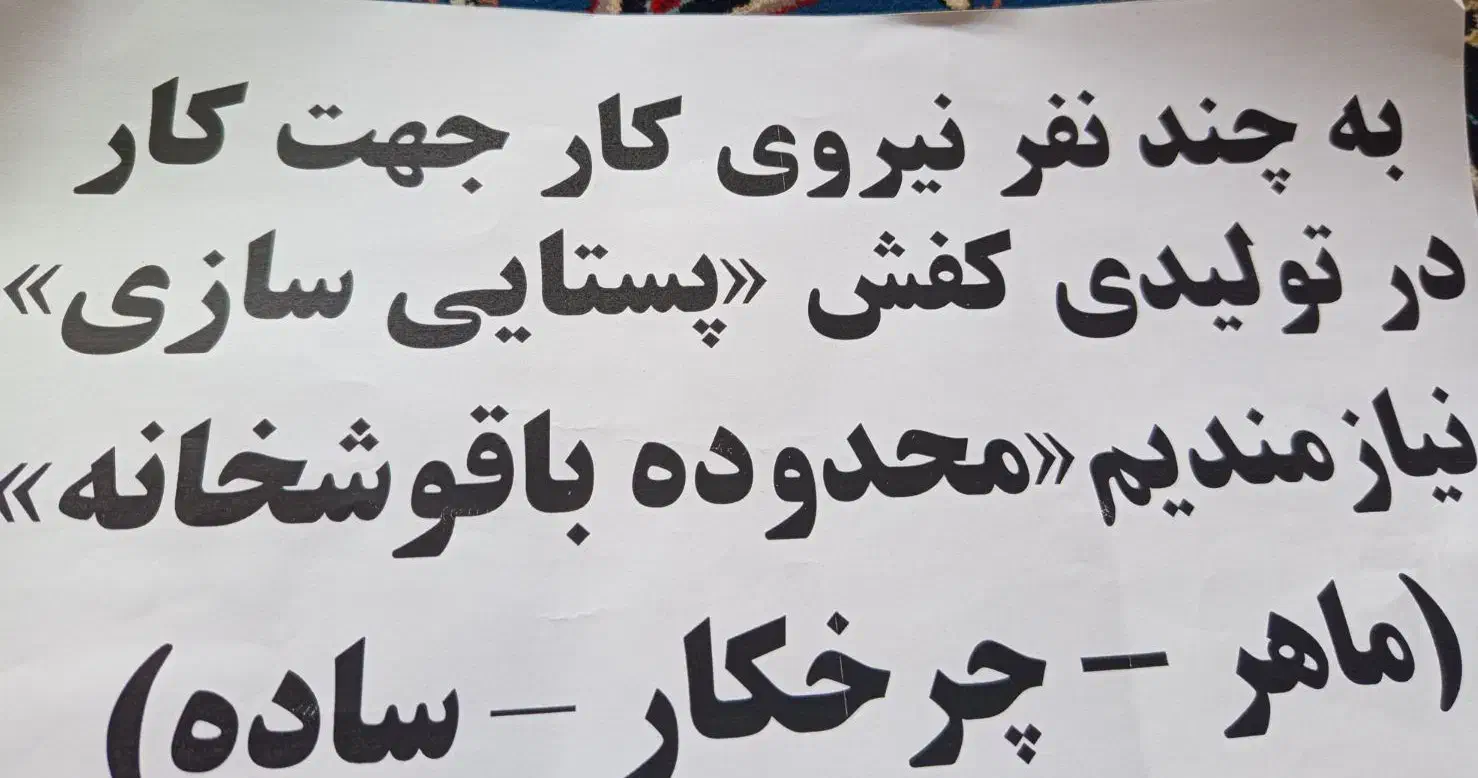 به چند نفر نیروی کار جهت کار
در تولیدی کفش «پستایی سازی»
نیازمندیم«محدوده باقوشخانه»
(ماهر – چرخکار – ساده)